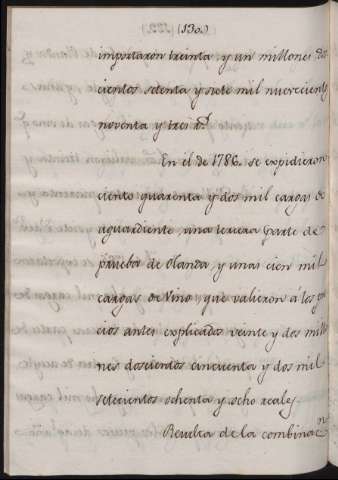 (130.)
importaron treinta, y un millones dos
cientos setenta y siete mil nuevecientos
noventa y tres r.s
En el de 1786. se expidieron
ciento quarenta y dos mil cargas de
aguardiente, una tercera parte de
prueba de Olanda, y unas cien mil
cargas de Vino, que valieron á los pre
cios antes explicados veinte y dos millo
nes doscientos cincuenta y dos mil
setecientos ochenta y ocho reales.
Resulta de la combinac.n